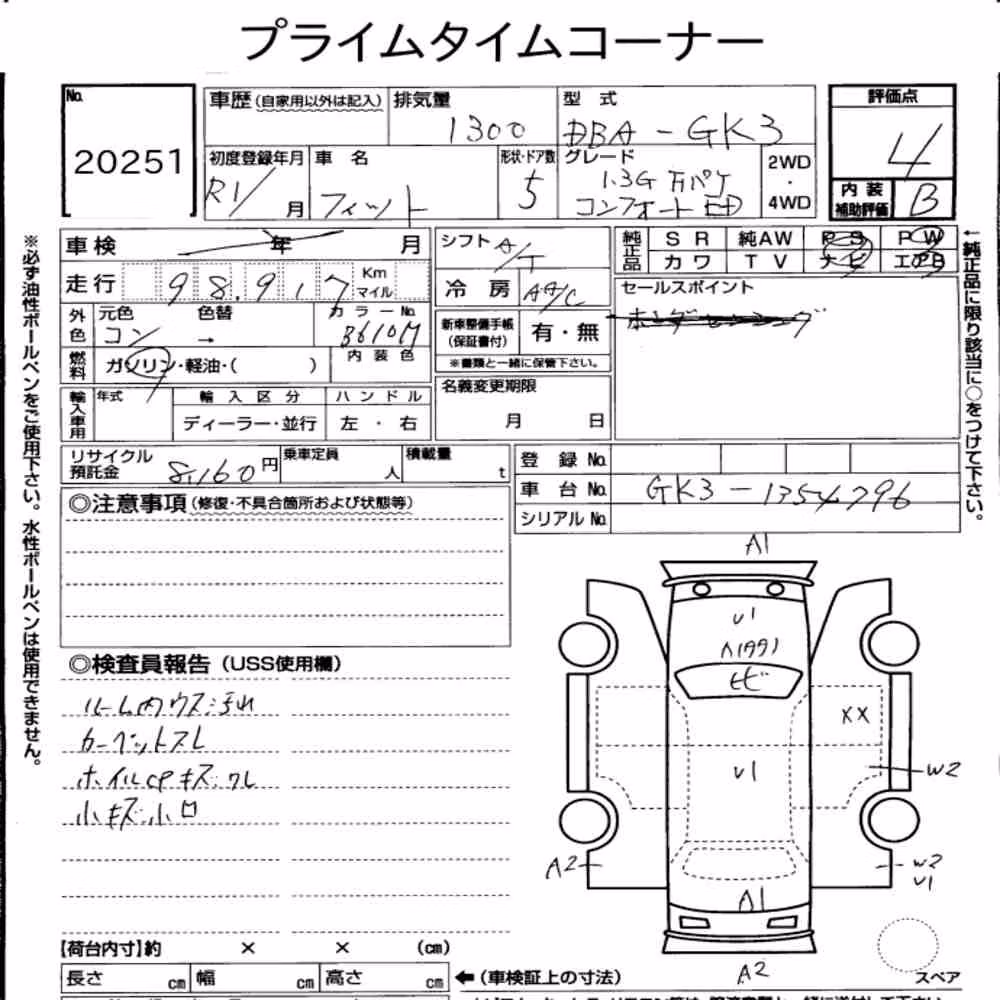 プライムタイムコーナー
No. 20251
車歴 (自家用以外は記入)
排気量 1300
型 式 DBA-GK3
評価点 4
内装補助評価 B
初度登録年月 R1/ 月
車 名 フィット
形状・ドア数 5
グレード 1.3G F パケ
コンフォート ED
2WD・4WD
※必ず油性ボールペンをご使用下さい。水性ボールペンは使用できません。
車検 年 月
シフト A/T
純正品 SR 純AW PS PW
カワ TV ナビ エアB
←純正品に限り該当に○をつけて下さい。
走行 98,917 Km マイル
冷 房 AA/C
セールスポイント
ホンダセンシング
外色 元色 コン 色替 → カラーNo. B610M
新車整備手帳(保証書付) 有・無
※書類と一緒に保管下さい。
燃料 ガソリン・軽油・( ) 内装色
名義変更期限
月 日
輸入車用 年式 輸入区分 ハンドル
ディーラー・並行 左・右
リサイクル預託金 8,160円
乗車定員 人
積載量 t
登 録 No.
車 台 No. GK3-1354796
シリアル No.
◎注意事項 (修復・不具合箇所および状態等)
◎検査員報告 (USS使用欄)
ルーム内ウス汚れ
カーペットスレ
ホイルCPキズ、ワレ
小キズ、小凹
A1
U1
ヒビ
XX
U1
W2
A2
W2
U1
A1
A2
スペア
【荷台内寸】約 × × (cm)
長さ cm 幅 cm 高さ cm ←(車検証上の寸法)